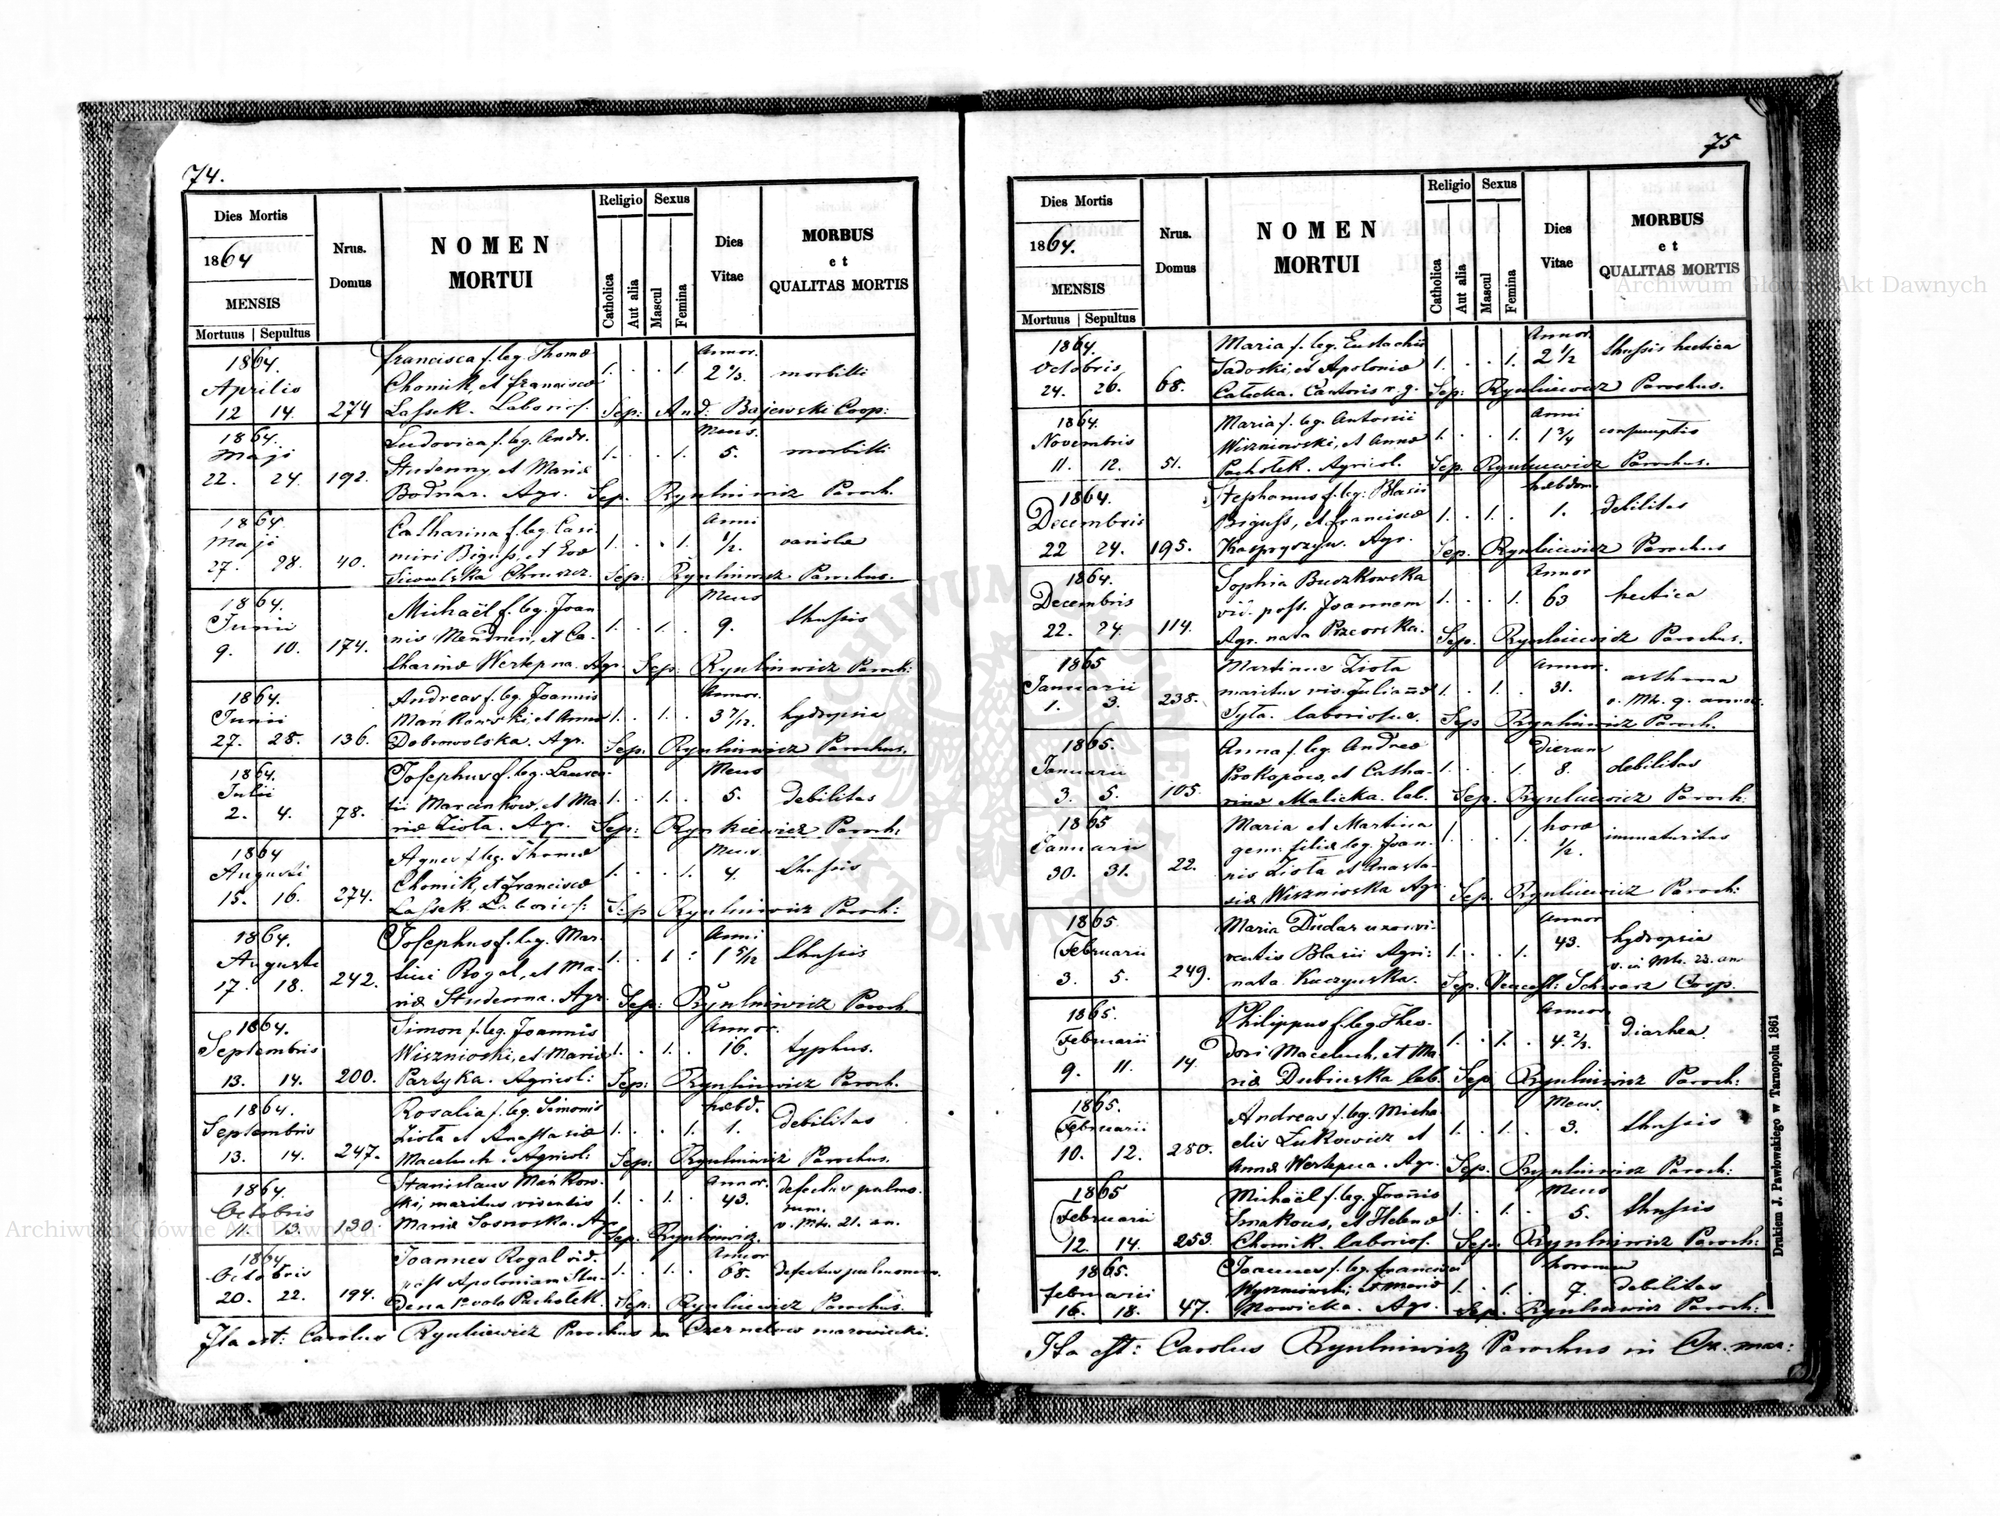 74.
Dies Mortis
1864
MENSIS
Mortuus | Sepultus
Nrus. Domus
NOMEN MORTUI
Religio
Catholica
Aut alia
Sexus
Mascul
Femina
Dies Vitae
MORBUS et QUALITAS MORTIS
1864. Aprilis 12 14. 274
Francisca f. leg. Thomæ
Chomik, et Franciscæ
Lassek. Laborios.
1. 1. Annor. 2 1/3. morbilli
Sep: And. Bajewski Coop:
1864. Maji 22. 24. 192.
Ludovica f. leg. Andr.
Studenny, et Mariæ
Bodnar. Agr.
1. 1. Mens. 5. morbilli
Sep. Rynkiewicz Paroch.
1864 Maji 27. 28. 40.
Catharina f. leg. Casi-
miri Biguss, et Evæ
1. 1. Anni 1/2. variolæ
Sep: Rynkiewicz Parochus.
1864. Junii 9. 10. 174.
Michaël f. leg. Joan
nis Mendrun, et Ca-
tharinæ Wertepna. Agr.
1. 1. Mens 9. thussis
Sep: Rynkiewicz Paroch:
1864. Junii 27. 28. 136.
Andreas f. leg. Joannis
Mańkowski, et Annæ
Dobrowolska. Agr.
1. 1. Annor. 3 7/12. hydropsia
Sep: Rynkiewicz Parochus.
1864. Julii 2. 4. 78.
Josephus f. leg. Lauren
tii Marcinkow, et Ma-
riæ Ziola. Agr.
1. 1. Mens 5. debilitas
Sep: Rynkiewicz Paroch:
1864 Augusti 15. 16. 274.
Agnes f. leg. Thomæ
Chomik, et Franciscæ
Lassek. Laborios:
1. 1. Mens. 4. thussis
Sep Rynkiewicz Paroch:
1864. Augusti 17. 18. 242.
Josephus f. leg. Mar-
tini Rogal, et Ma-
riæ Studenna. Agr.
1. 1. Anni 1 5/12 thussis
Sep: Rynkiewicz Paroch
1864. Septembris 13. 14. 200.
Simon f. leg. Joannis
Wisznioski, et Mariæ
Partyka. Agricol:
1. 1. Annor. 16. typhus.
Sep: Rynkiewicz Paroch.
1864. Septembris 13. 14. 247.
Rosalia f. leg. Simonis
Ziola et Anastasiæ
Maceluch. Agricol:
1. 1. hebd. 1. debilitas
Sep: Rynkiewicz Parochus.
1864. Octobris 11. 13. 130.
Stanislaus Mańkow-
ski, maritus viventis
Mariæ Sosnoska. Agr
1. 1. Annor. 43. defectus pulmo-
num.
v. Mtr. 21. an.
Sep. Rynkiewicz.
1864. Octobris 20. 22. 194.
Joannes Rogal vid.
post Apoloniam Stu-
dena 1º voto Pacholek.
1. 1. Annor 68. defectus pulmonum.
Sep: Rynkiewicz Parochus.
Ita est: Carolus Rynkiewicz Parochus in Czernelow mazowiecki.
75
Dies Mortis
1864.
MENSIS
Mortuus | Sepultus
Nrus. Domus
NOMEN MORTUI
Religio
Catholica
Aut alia
Sexus
Mascul
Femina
Dies Vitae
MORBUS et QUALITAS MORTIS
1864. Octobris 24. 26. 68.
Maria f. leg. Eustachii
Sadoski, et Apoloniæ
Catecka. Cantoris r. g.
1. 1. Annor. 2 1/2 thussis hectica
Sep: Rynkiewicz Parochus.
1864. Novembris 11. 12. 51.
Maria f. leg. Antonii
Wiszniowski, et Annæ
Pacholek. Agricol.
1. 1. Anni 1 3/4 consumptio
Sep. Rynkiewicz Parochus.
1864. Decembris 22 24. 195.
Stephanus f. leg: Blasii
Biguss, et Franciscæ
Kaspryszyn. Agr.
1. 1. hebdom. 1. debilitas
Sep: Rynkiewicz Parochus
1864. Decembris 22. 24. 114.
Sophia Buczkowska
vid. post. Joannem
Agr. nata Przeorska.
1. 1. Annor 63 hectica
Sep: Rynkiewicz Parochus.
1865 Januarii 1. 3. 238.
Martinus Ziola
maritus viv. Julianæ
Syta. laboriosus.
1. 1. Annor. 31. asthma
Sep Rynkiewicz Paroch.
1865. Januarii 3. 5. 105.
Anna f. leg. Andreæ
Prokopow, et Catha-
rinæ Malicka. lab.
1. 1. Dierum 8. debilitas
Sep. Rynkiewicz Paroch.
1865 Januarii 30. 31. 22.
Maria et Martina
gem. filiæ leg. Joan-
nis Ziola et Anasta-
siæ Wisznioska Agr.
1. 1. horæ 1/2. immaturitas
Sep. Rynkiewicz Paroch:
1865 Februarii 3. 5. 249.
Maria Dudar uxor vi-
ventis Blasii Agri-
nata Kuczynska.
1. 1. Annor 43. hydropsia
v. in Mtr. 23. an
Sep. Schwarz Coop.
1865. Februarii 9. 11. 14
Philippus f. leg Theo-
dori Maceluch, et Ma-
riæ Dubinska lab.
1. 1. Annor 4 2/3. diarhea.
Sep Rynkiewicz Paroch:
1865. Februarii 10. 12. 250.
Andreas f. leg. Micha
elis Łukowicz et
Annæ Wertepna. Agr.
1. 1. Mens. 3. thussis
Sep. Rynkiewicz Paroch:
1865 Februarii 12. 14. 253.
Michaël f. leg. Joannis
Smakous, et Helenæ
Chomik. laborios.
1. 1. Mens 5. thussis
Sep. Rynkiewicz Paroch:
1865. Februarii 16. 18. 47.
Joannes f. leg. Francisci
Wyszniowski, et Mariæ
Nowicka. Agr.
1. 1. horarum 7. debilitas
Sep. Rynkiewicz Paroch:
Ita est: Carolus Rynkiewicz Parochus in Cz. maz:
Drukiem J. Pawłowskiego w Tarnopolu 1861
Archiwum Główne Akt Dawnych
Archiwum Główne Akt Dawnych
ARCHIWUM GŁÓWNE AKT DAWNYCH